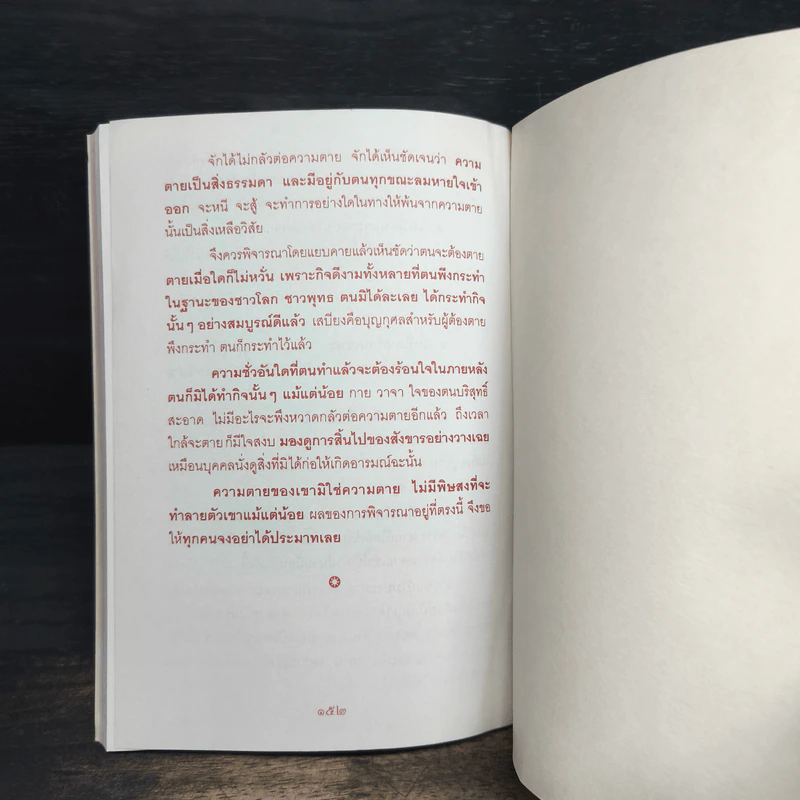 จักได้ไม่กลัวต่อความตาย จักได้เห็นชัดเจนว่า ความ
ตายเป็นสิ่งธรรมดา และมีอยู่กับตนทุกขณะลมหายใจเข้า
ออก จะหนี จะสู้ จะทำการอย่างใดในทางให้พ้นจากความตาย
นั้นเป็นสิ่งเหลือวิสัย
จึงควรพิจารณาโดยแยบคายแล้วเห็นชัดว่าตนจะต้องตาย
ตายเมื่อใดก็ไม่หวั่น เพราะกิจดีงามทั้งหลายที่ตนพึงกระทำ
ในฐานะของชาวโลก ชาวพุทธ ตนมิได้ละเลย ได้กระทำกิจ
นั้นๆ อย่างสมบูรณ์ดีแล้ว เสบียงคือบุญกุศลสำหรับผู้ต้องตาย
พึงกระทำ ตนก็กระทำไว้แล้ว
ความชั่วอันใดที่ตนทำแล้วจะต้องร้อนใจในภายหลัง
ตนก็มิได้ทำกิจนั้นๆ แม้แต่น้อย กาย วาจา ใจของตนบริสุทธิ์
สะอาด ไม่มีอะไรจะพึงหวาดกลัวต่อความตายอีกแล้ว ถึงเวลา
ใกล้จะตาย ก็มีใจสงบ มองดูการสิ้นไปของสังขารอย่างวางเฉย
เหมือนบุคคลนั่งดูสิ่งที่มิได้ก่อให้เกิดอารมณ์ฉะนั้น
ความตายของเขามิใช่ความตาย ไม่มีพิษสงที่จะ
ทำลายตัวเขาแม้แต่น้อย ผลของการพิจารณาอยู่ที่ตรงนี้ จึงขอ
ให้ทุกคนจงอย่าได้ประมาทเลย
๑๕๒